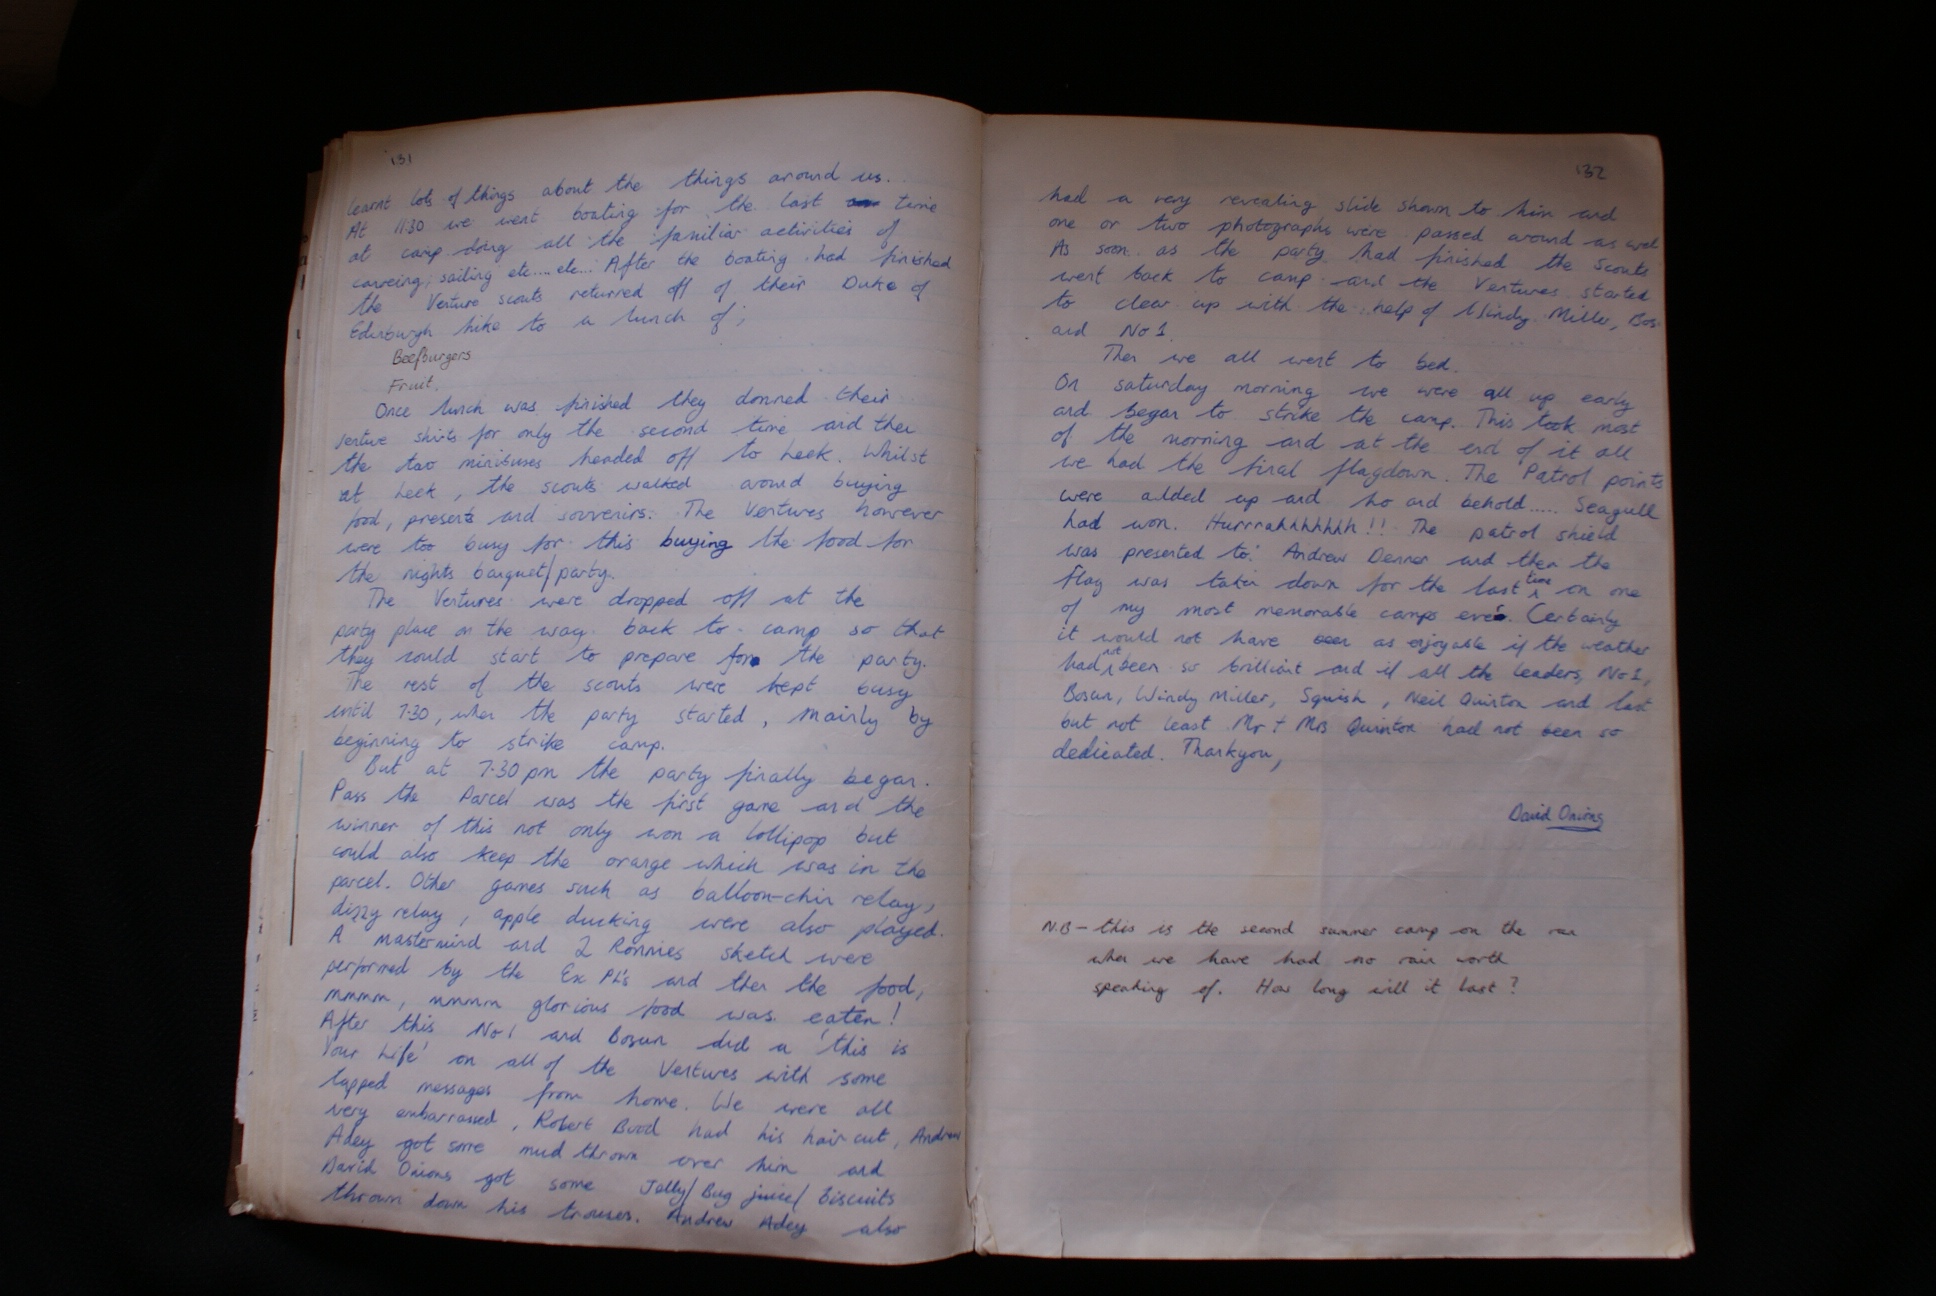 131
learnt lots of things about the things around us.
At 11:30 we went boating for the last time
at camp doing all the familiar activities of
canoeing, sailing etc.... etc... After the boating had finished
the Venture scouts returned off of their Duke of
Edinburgh hike to a lunch of;
Beefburgers
Fruit.
Once lunch was finished they donned their
venture shirts for only the second time and then
the two minibuses headed off to Leek. Whilst
at Leek, the scouts walked around buying
food, presents and souvenirs. The Ventures however
were too busy for this buying the food for
the nights banquet/party.
The Ventures were dropped off at the
party place on the way back to camp so that
they could start to prepare for the party.
The rest of the scouts were kept busy
until 7-30, when the party started, mainly by
beginning to strike camp.
But at 7-30pm the party finally began.
Pass the Parcel was the first game and the
winner of this not only won a lollipop but
could also keep the orange which was in the
parcel. Other games such as balloon-chin relay,
dizzy relay, apple ducking were also played.
A mastermind and 2 Ronnies sketch were
performed by the Ex PL's and then the food,
mmmm, mmmm glorious food was eaten!
After this No1 and Bosun did a 'this is
Your Life' on all of the Ventures with some
tapped messages from home. We were all
very embarrassed, Robert Bood had his hair cut, Andrew
Adey got some mud thrown over him and
David Onions got some Jelly/Bug juice/biscuits
thrown down his trouses. Andrew Adey also
132
had a very revealing slide shown to him and
one or two photographs were passed around as well
As soon as the party had finished the Scouts
went back to camp and the Ventures started
to clear up with the help of Windy Miller, Bosun
and No 1.
Then we all went to bed.
On saturday morning we were all up early
and began to strike the camp. This took most
of the morning and at the end of it all
we had the final flagdown. The Patrol points
were added up and ho and behold..... Seagull
had won. Hurrrahhhhhhh!! The patrol shield
was presented to Andrew Denner and then the
flag was taken down for the last time on one
of my most memorable camps ever. Certainly
it would not have been as enjoyable if the weather
had not been so brilliant and if all the leaders, No1,
Bosun, Windy Miller, Squish, Neil Quinton and last
but not least Mr + Mrs Quinton had not been so
dedicated. Thankyou,
David Onions
N.B - this is the second summer camp on the run
when we have had no rain worth
speaking of. How long will it last?